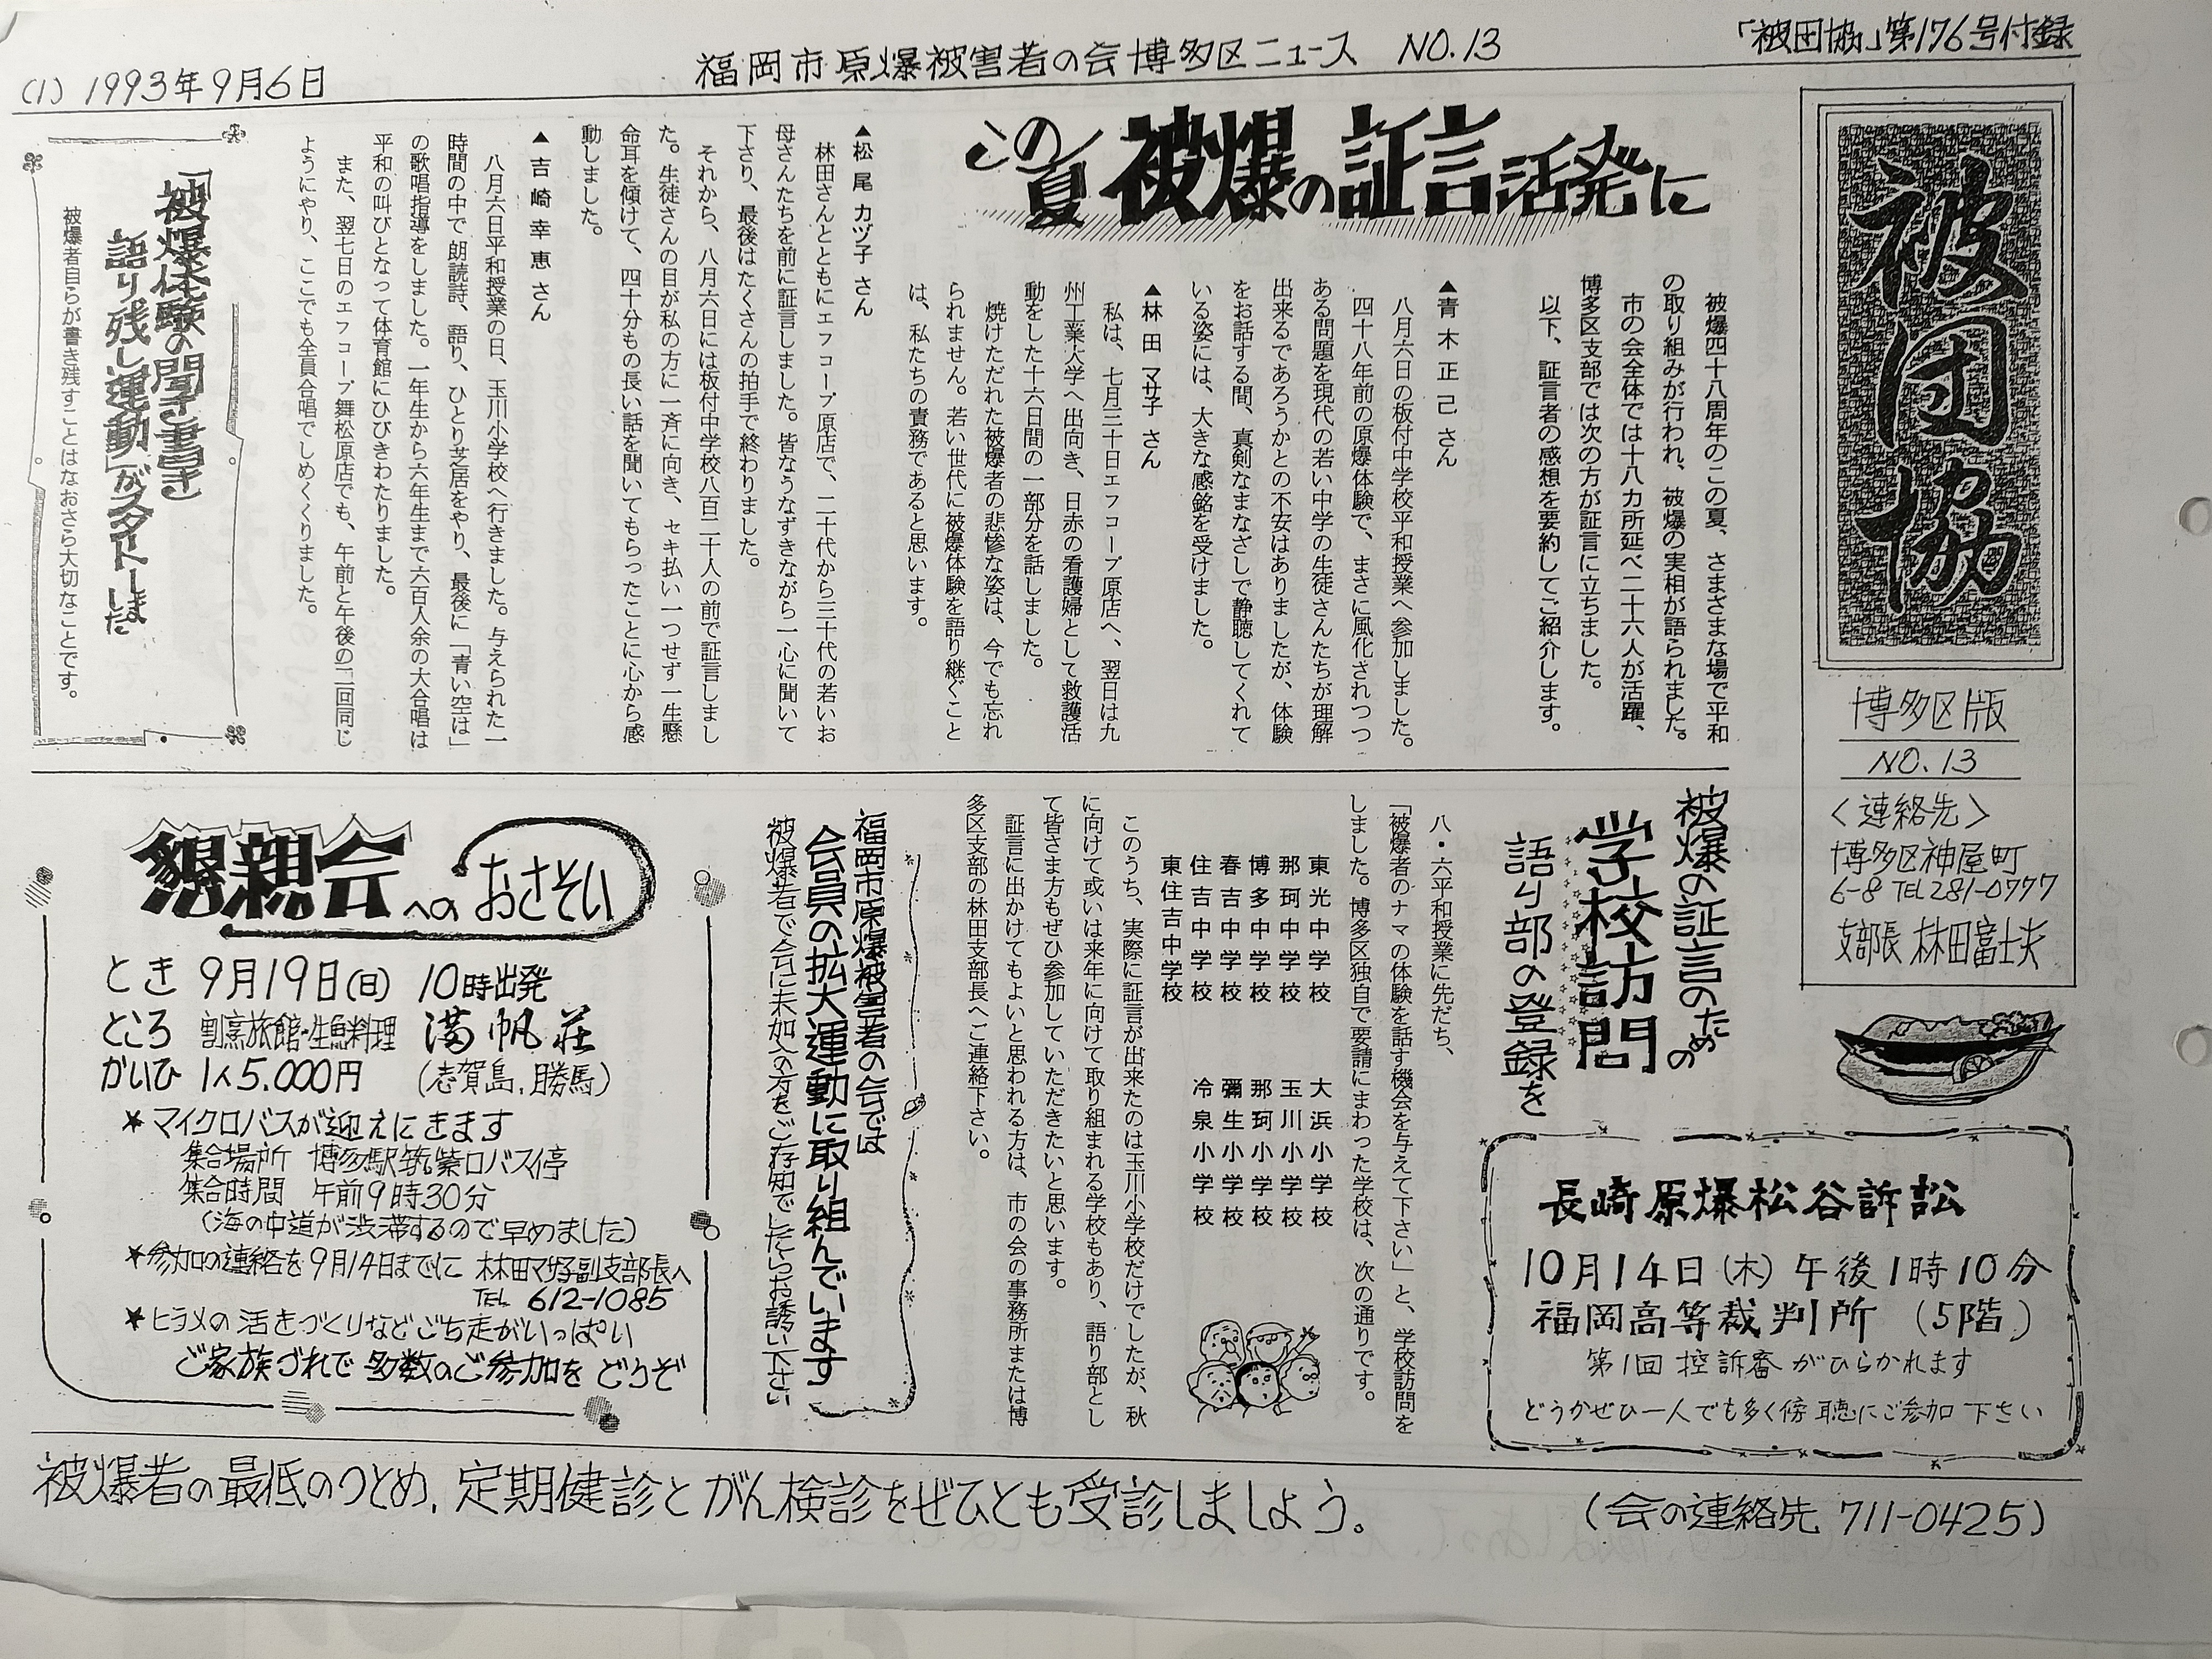 (1) 1993年9月6日
福岡市原爆被害者の会博多区ニュース NO.13
「被団協」第176号付録
被団協
博多区版
NO.13
〈連絡先〉
博多区神屋町
6-8 TEL281-0777
支部長 林田富士夫
この夏被爆の証言活発に
被爆四十八周年のこの夏、さまざまな場で平和
の取り組みが行われ、被爆の実相が語られました。
市の会全体では十八カ所延べ二十六人が活躍、
博多区支部では次の方が証言に立ちました。
以下、証言者の感想を要約してご紹介します。
▲青木正己さん
八月六日の板付中学校平和授業へ参加しました。
四十八年前の原爆体験で、まさに風化されつつ
ある問題を現代の若い中学の生徒さんたちが理解
出来るであろうかとの不安はありましたが、体験
をお話する間、真剣なまなざしで静聴してくれて
いる姿には、大きな感銘を受けました。
▲林田マサ子さん
私は、七月三十日エフコープ原店へ、翌日は九
州工業大学へ出向き、日赤の看護婦として救護活
動をした十六日間の一部分を話しました。
焼けただれた被爆者の悲惨な姿は、今でも忘れ
られません。若い世代に被爆体験を語り継ぐこと
は、私たちの責務であると思います。
▲松尾カヅ子さん
林田さんとともにエフコープ原店で、二十代から三十代の若いお
母さんたちを前に証言しました。皆なうなずきながら一心に聞いて
下さり、最後はたくさんの拍手で終わりました。
それから、八月六日には板付中学校八百二十人の前で証言しまし
た。生徒さんの目が私の方に一斉に向き、セキ払い一つせず一生懸
命耳を傾けて、四十分もの長い話を聞いてもらったことに心から感
動しました。
▲吉崎幸恵さん
八月六日平和授業の日、玉川小学校へ行きました。与えられた一
時間の中で朗読詩、語り、ひとり芝居をやり、最後に「青い空は」
の歌唱指導をしました。一年生から六年生まで六百人余の大合唱は
平和の叫びとなって体育館にひびきわたりました。
また、翌七日のエフコープ舞松原店でも、午前と午後の二回同じ
ようにやり、ここでも全員合唱でしめくくりました。
「被爆体験の聞き書き
語り残し運動」がスタートしました
被爆者自らが書き残すことはなおさら大切なことです。
被爆の証言のための
学校訪問
語り部の登録を
八・六平和授業に先だち、
「被爆者のナマの体験を話す機会を与えて下さい」と、学校訪問を
しました。博多区独自で要請にまわった学校は、次の通りです。
東光中学校 大浜小学校
那珂中学校 玉川小学校
博多中学校 那珂小学校
春吉中学校 彌生小学校
住吉中学校 冷泉小学校
東住吉中学校
このうち、実際に証言が出来たのは玉川小学校だけでしたが、秋
に向けて或いは来年に向けて取り組まれる学校もあり、語り部とし
て皆さま方もぜひ参加していただきたいと思います。
証言に出かけてもよいと思われる方は、市の会の事務所または博
多区支部の林田支部長へご連絡下さい。
長崎原爆松谷訴訟
10月14日(木) 午後1時10分
福岡高等裁判所 (5階)
第1回 控訴審 がひらかれます
どうかぜひ一人でも多く傍聴にご参加 下さい
福岡市原爆被害者の会では
会員の拡大運動に取り組んでいます
被爆者で会に未加入の方をご存知でしたらお誘い下さい
懇親会へのおさそい
とき 9月19日(日) 10時出発
ところ 割烹旅館・生魚料理 満帆荘
かいひ 1人5.000円 (志賀島、勝馬)
★マイクロバスが迎えにきます
集合場所 博多駅筑紫口バス停
集合時間 午前9時30分
(海の中道が渋滞するので早めました)
★参加の連絡を9月14日までに 林田マサ子副支部長へ
TEL 612-1085
★ヒラメの活きづくりなどごち走がいっぱい
ご家族づれで多数のご参加を どうぞ
被爆者の最低のつとめ、定期健診とがん検診をぜひとも受診しましょう。
(会の連絡先 711-0425)